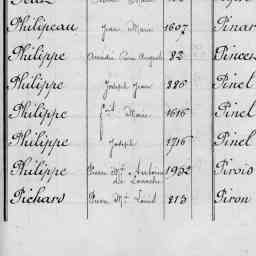 Philipeau Jean Marie 1607 Pinar
Philippe Amédée Pierre Auguste 82 Pincer
Philippe Joseph Jean 886 Pinel
Philippe Marie 1616 Pinel
Philippe Joseph 1716 Pinel
Philippe Pierre Mie Antoine 1932 Piroio
de
Pichard Pierre Mie Louis 213 Piron